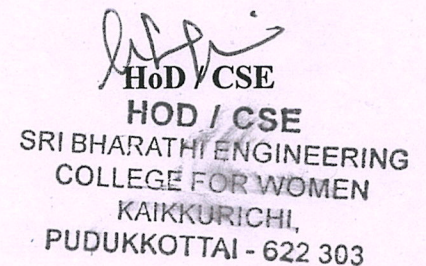 HoD / CSE
HOD / CSE
SRI BHARATHI ENGINEERING
COLLEGE FOR WOMEN
KAIKKURICHI,
PUDUKKOTTAI - 622 303